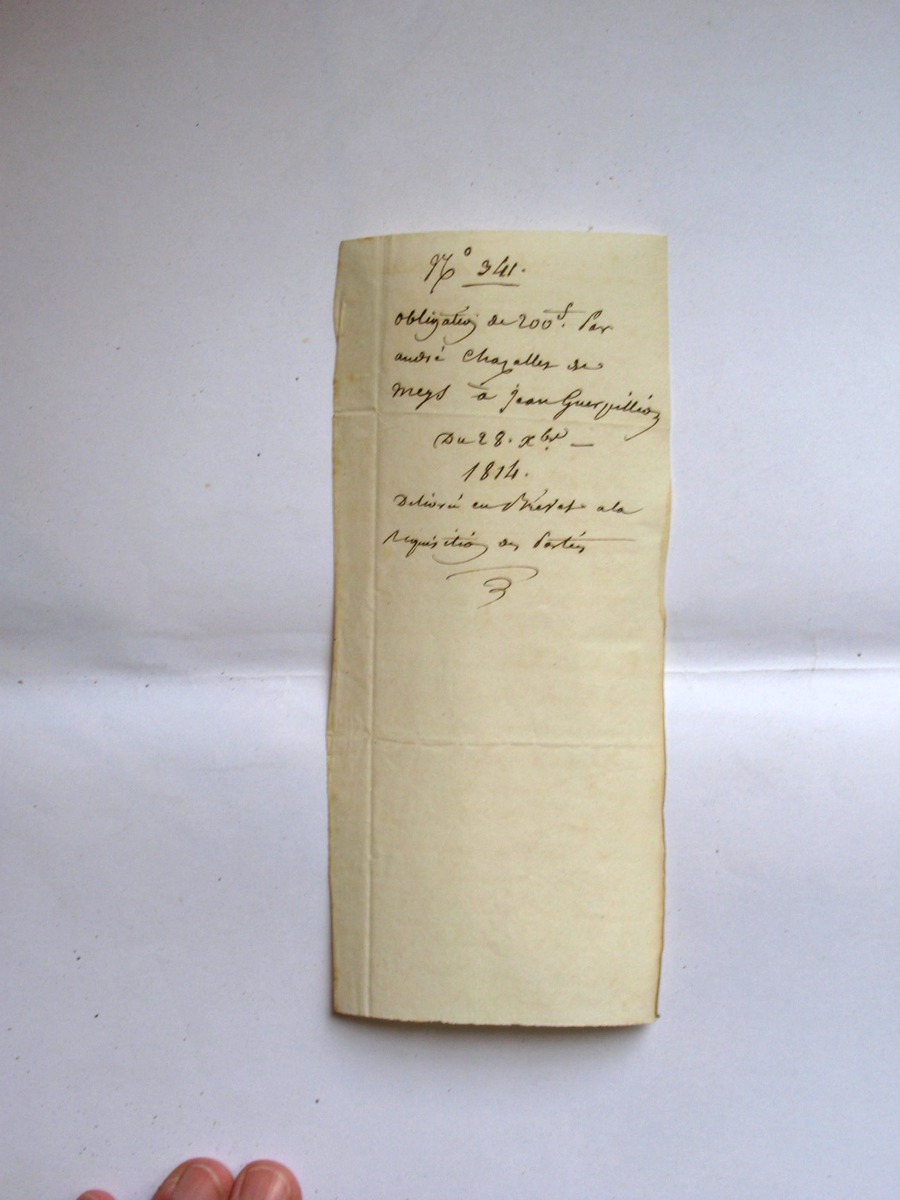 N° 341.
obligation de 200f. Par
andré Chazallet de
meys à Jean Guerpillion
Du 28. xbre —
1814.
Delivré en Brevet a la
requisition des Parties